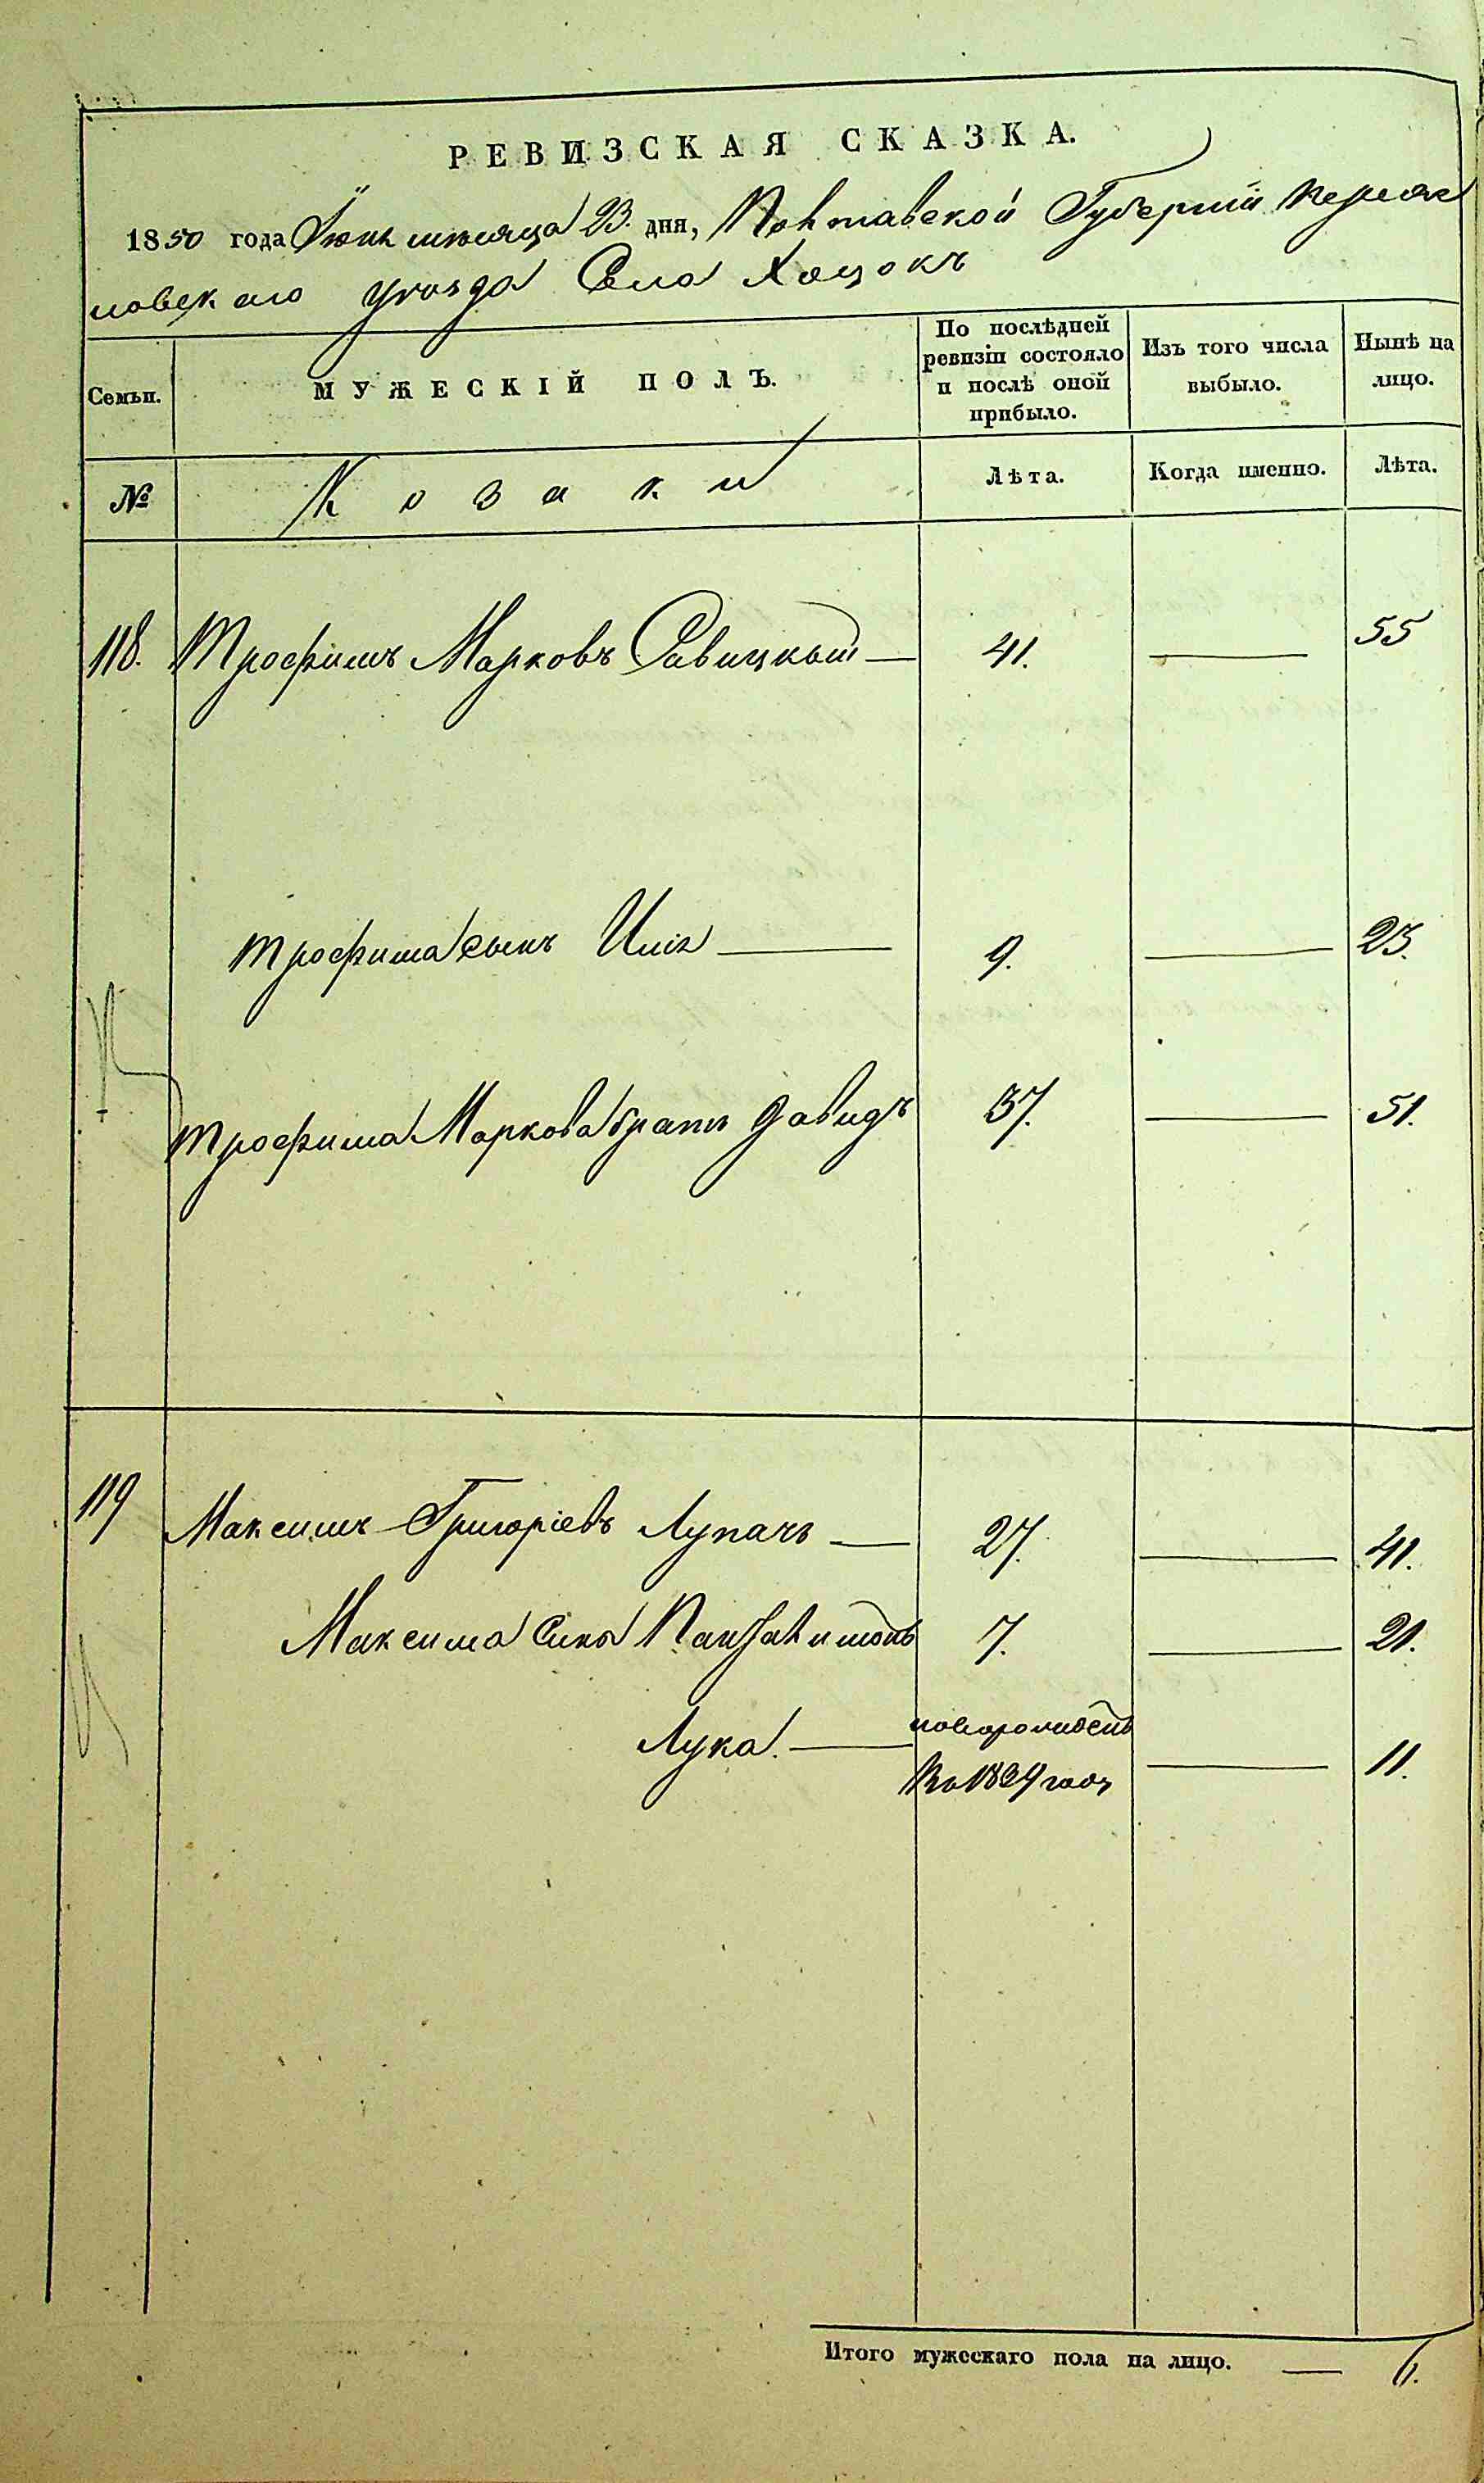 РЕВИЗСКАЯ СКАЗКА.
1850 года Іюнь мѣсяца 23. дня, Полтавской Губерніи Переяс
ловскаго уѣзда Села Хоцокъ
Семьи.
МУЖЕСКІЙ ПОЛЪ.
По послѣдней ревизіи состояло и послѣ оной прибыло.
Изъ того числа выбыло.
Нынѣ на лицо.
№ Козаки Лѣта. Когда именно. Лѣта.
118. Трофимъ Марковъ Савицкый — 41. — 55
Трофима сынъ Илія — 9. — 23.
Трофима Маркова братъ Давидъ 37. — 51.
119 Максимъ Григоріевъ Лупачъ — 27. — 41.
Максима Сины Панталимонъ 7. — 21.
Лука. — новорожденъ
въ 1839 году — 11.
Итого мужескаго пола на лицо. — 6.